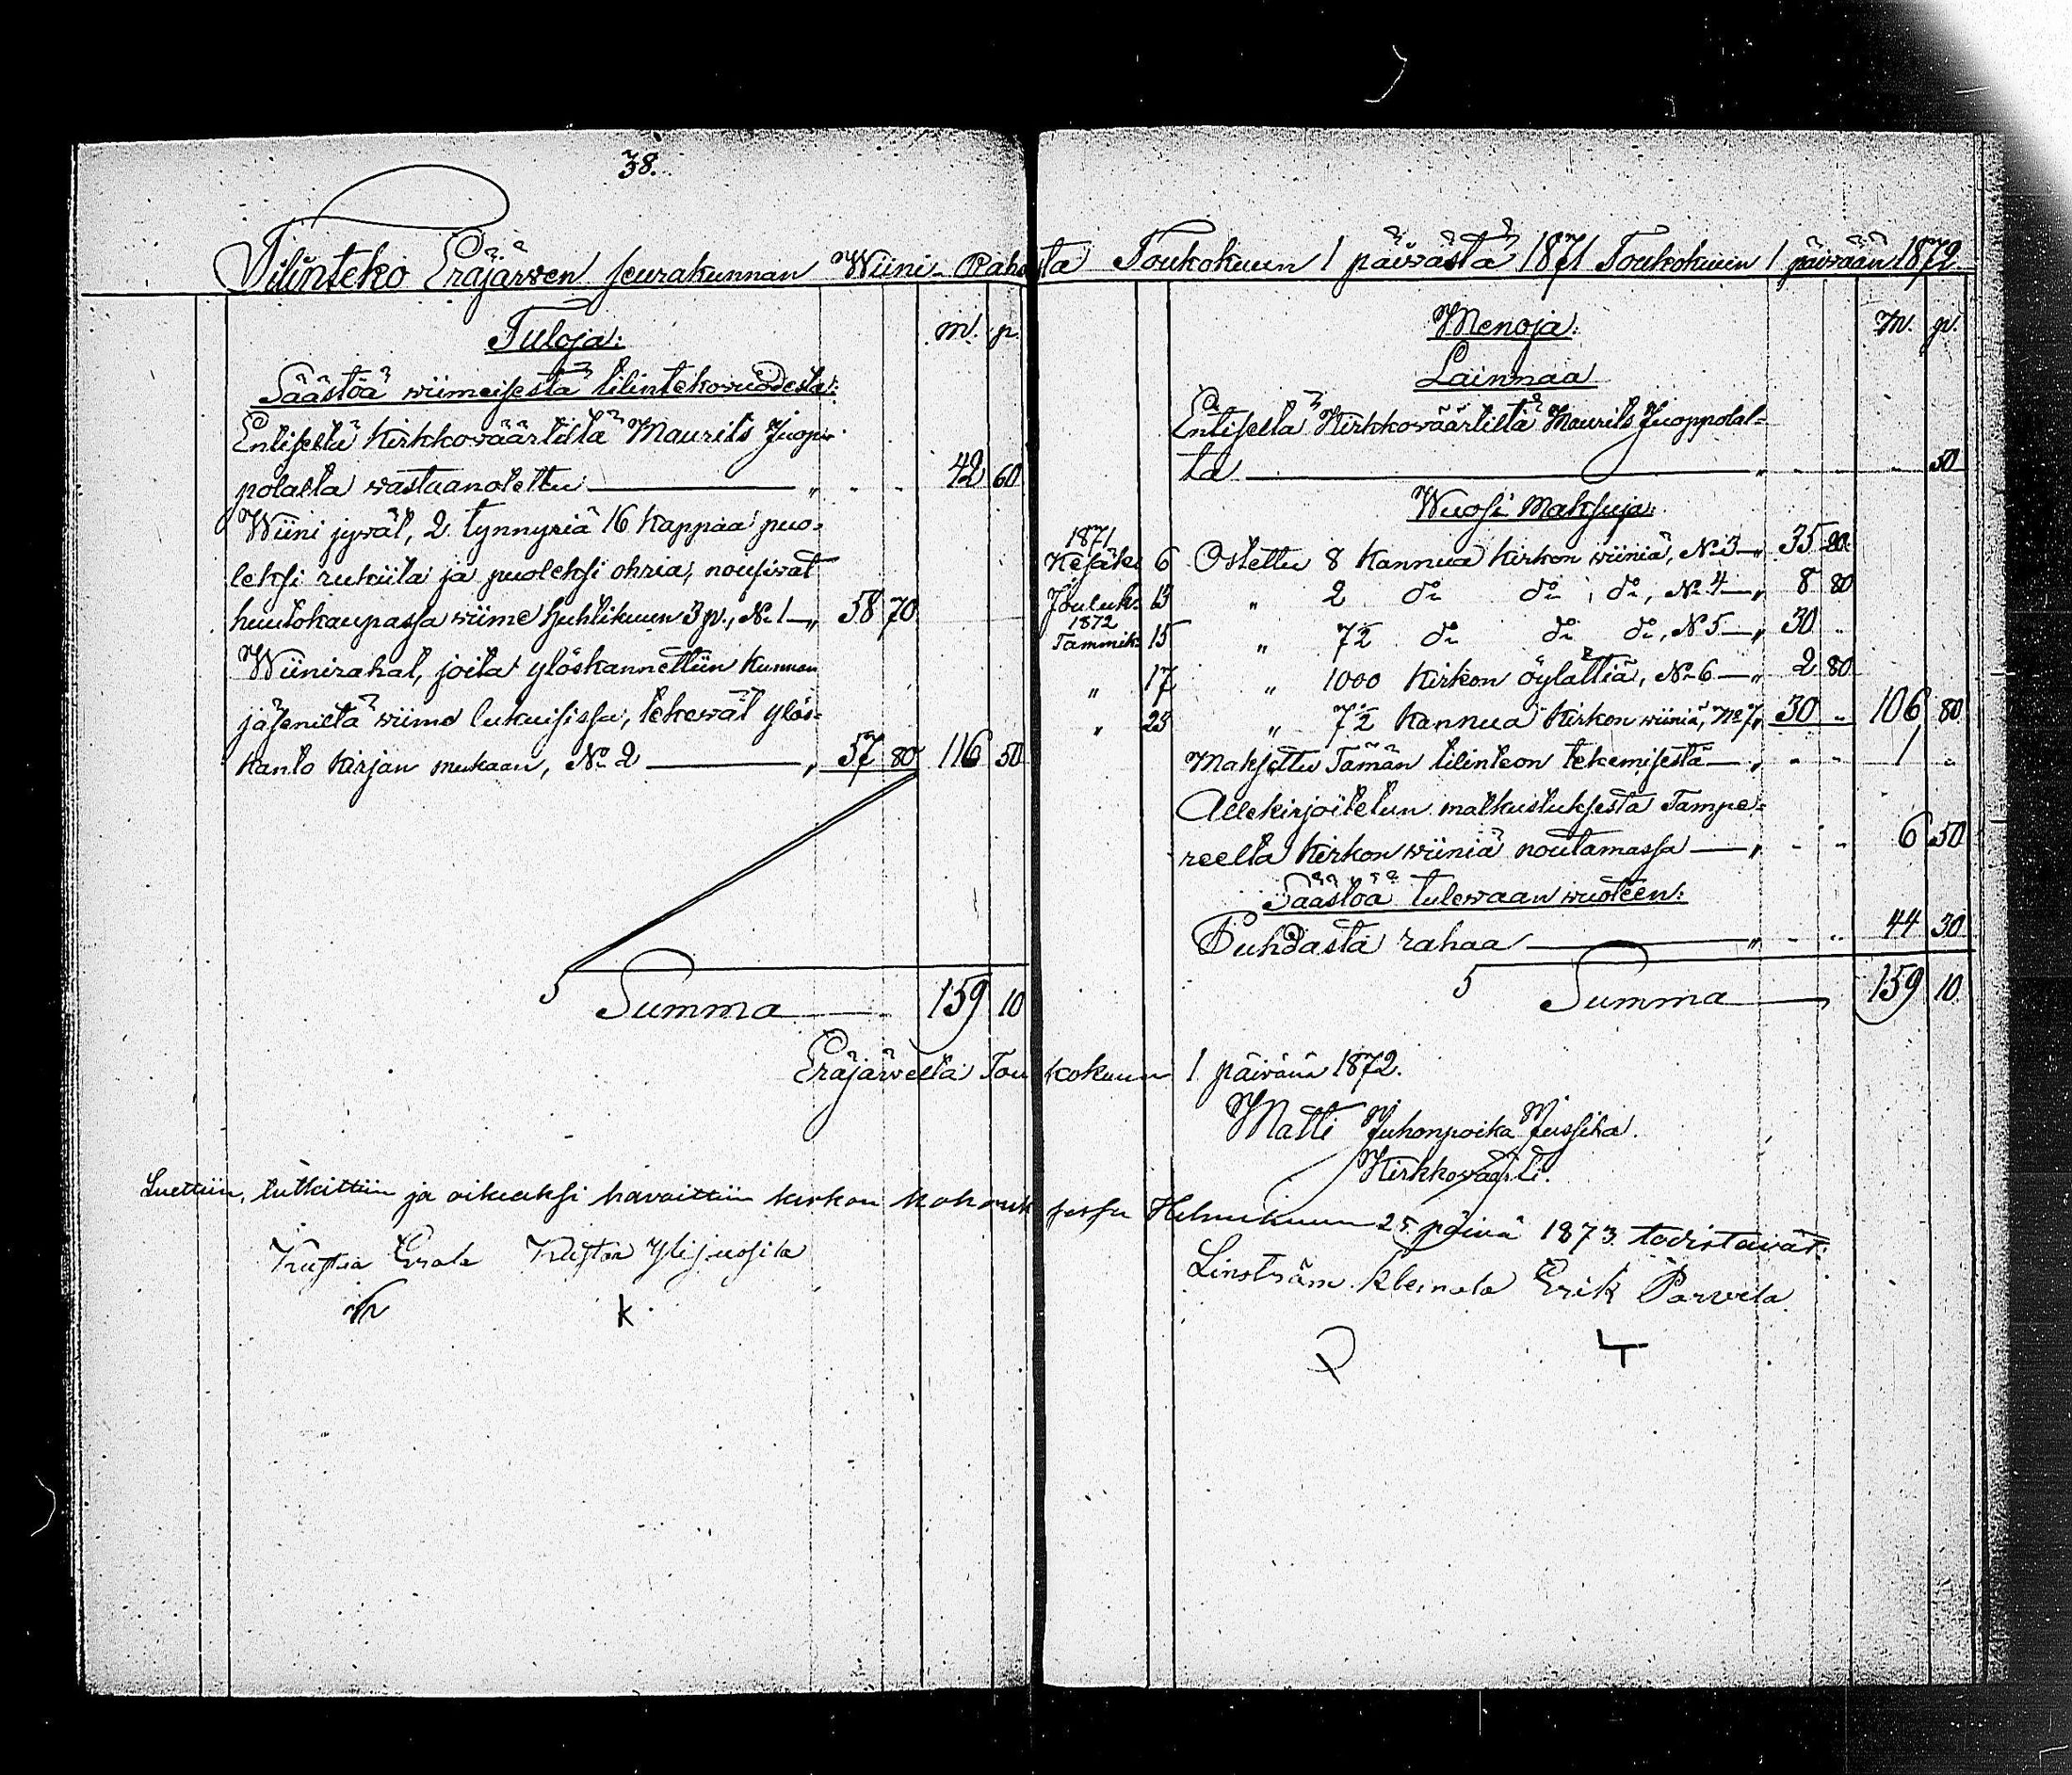 38.
Tilinteko Eräjärwen seurakunnan Wiini-Rahasta Toukokuun 1 päivästä 1871 Toukokuun 1 päivään 1872.
Tuloja: m. p.
Säästöä wiimeisestä tilintekowuodesta:
Entiseltä Kirkkowäärtiltä Maurits Juop-
polalta wastaanotettu — " - - 42 60
Wiini jywät, 2 tynnyriä 16 kappaa puo-
leksi rukiita ja puoleksi ohria, nousiwat
huutokaupassa wiime Huhtikuun 3 p., No 1 — " 58 70
Wiinirahat, joita ylöskannettiin kunnan
jäseniltä wiime lukuisissa, tekewät ylös-
kanto kirjan mukaan, No 2 — " 57 80 116 50
Summa — 159 10
Menoja: M. p.
Lainnaa
Entiseltä Kirkkowäärtiltä Maurits Juoppolal-
ta — " - - - 50
Wuosi Maksuja:
1871
Kesäk. 6 Ostettu 8 Kannua Kirkon wiiniä, No 3 — " 35 20
Jouluk. 13 " 2 do do do, No 4 — " 8 80
1872
Tammik. 15 " 7½ do do do, No 5 — " 30 "
" 17 " 1000 Kirkon öylättiä, No 6 — " 2 80
" 23 " 7½ Kannua Kirkon wiiniä, No 7 " 30 " 106 80
Maksettu Tämän tilinteon tekemisestä — " - - 1 "
Allekirjoitetun matkustuksesta Tampe-
reelta Kirkon wiiniä noutamassa — " - - 6 50
Säästöä tulewaan wuoteen:
Puhdasta rahaa — " - - 44 30
Summa — 159 10
Eräjärwellä Toukokuun 1 päivänä 1872.
Matti Juhonpoika Jussila.
Kirkkowäärti.
Luettiin, tutkittiin ja oikeaksi havaittiin kirkon kokouksessa Helmikuun 25 päivä 1873 todistavat:
Kustaa Erola Kustaa Ylijussila Linström Kleinola Erik Parvela
K